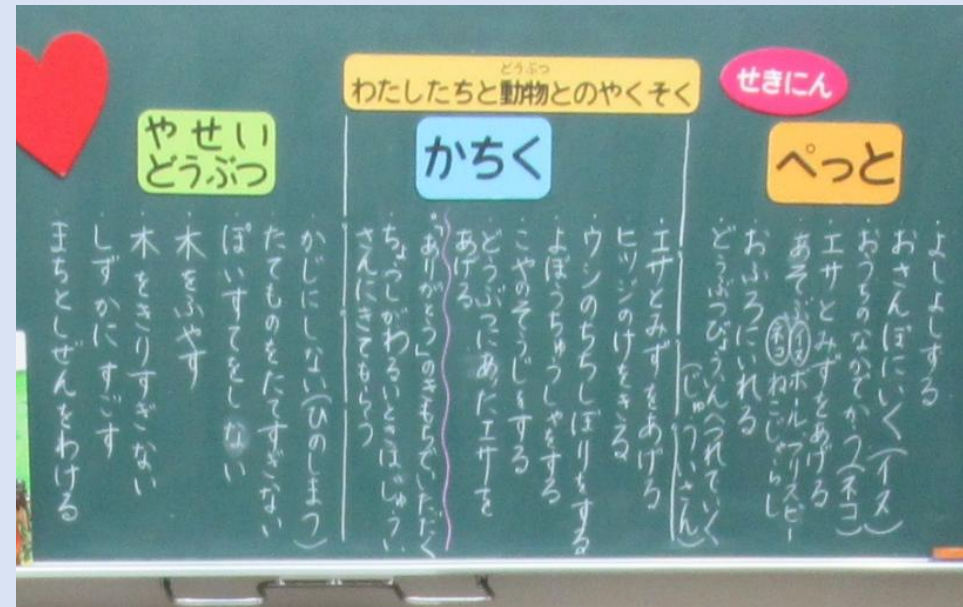 どうぶつ
わたしたちと動物とのやくそく
せきにん
ぺっと
・よしよしする
・おさんぽにいく(イヌ)
・おうちのなかでかう(ネコ)
・エサとみずをあげる
・あそぶ イヌ ボール、フリスビー
ネコ ねこじゃらし
・おふろにいれる
・どうぶつびょういんへつれていく
(じゅういさん)
かちく
・エサとみずをあげる
・ヒツジのけをきる
・ウシのちちしぼりをする
・よぼうちゅうしゃをする
・こやのそうじをする
・どうぶつにあったエサを
あげる
・「ありがとう」のきもちでいただく
・ちょうしがわるいときはじゅうい
さんにきてもらう
やせい
どうぶつ
・かじにしない(ひのしまつ)
・たてものをたてすぎない
・ぽいすてをしない
・木をふやす
・木をきりすぎない
・しずかにすごす
・まちとしぜんをわける